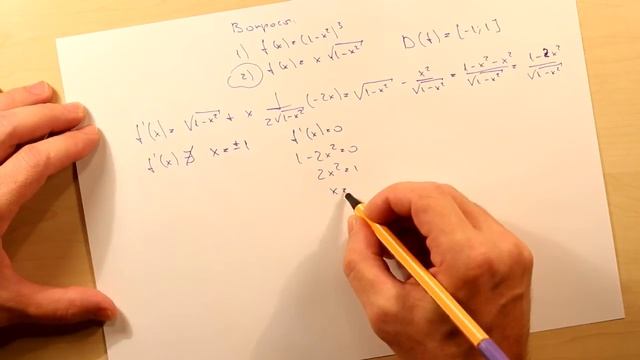 Вопросы:
1) f(x)=(1-x²)³
2) f(x)= x √(1-x²)     D(f)=[-1;1]
f'(x)= √(1-x²) + x 1/(2√(1-x²)) (-2x)= √(1-x²) - x²/√(1-x²) = (1-x²-x²)/√(1-x²) = (1-2x²)/√(1-x²)
f'(x) ∄   x=±1     f'(x)=0
1-2x²=0
2x²=1
x=